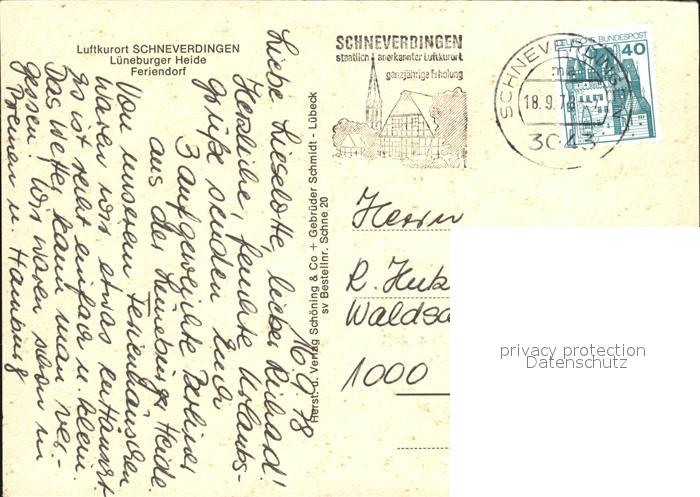 Luftkurort SCHNEVERDINGEN
Lüneburger Heide
Feriendorf
SCHNEVERDINGEN
staatlich anerkannter Luftkurort
ganzjährige Erholung
SCHNEVERDINGEN
18.9.78
3043
DEUTSCHE BUNDESPOST
40
16.9.78
Liebe Lieselotte, lieber Richard!
Herzliche, feuchte Urlaubs-
grüße senden Euch
3 aufgeweichte Berliner
aus der Lüneburger Heide.
Von unserem Ferienhäuschen
waren wir etwas enttäuscht
Es ist sehr einfach u. klein.
Das Wetter kann man ver-
gessen! Wir waren schon in
Bremen u. Hamburg
Herst. u. Verlag Schöning & Co + Gebrüder Schmidt - Lübeck
sv Bestellnr. Schne 20
Herrn
R.
1000
privacy protection
Datenschutz